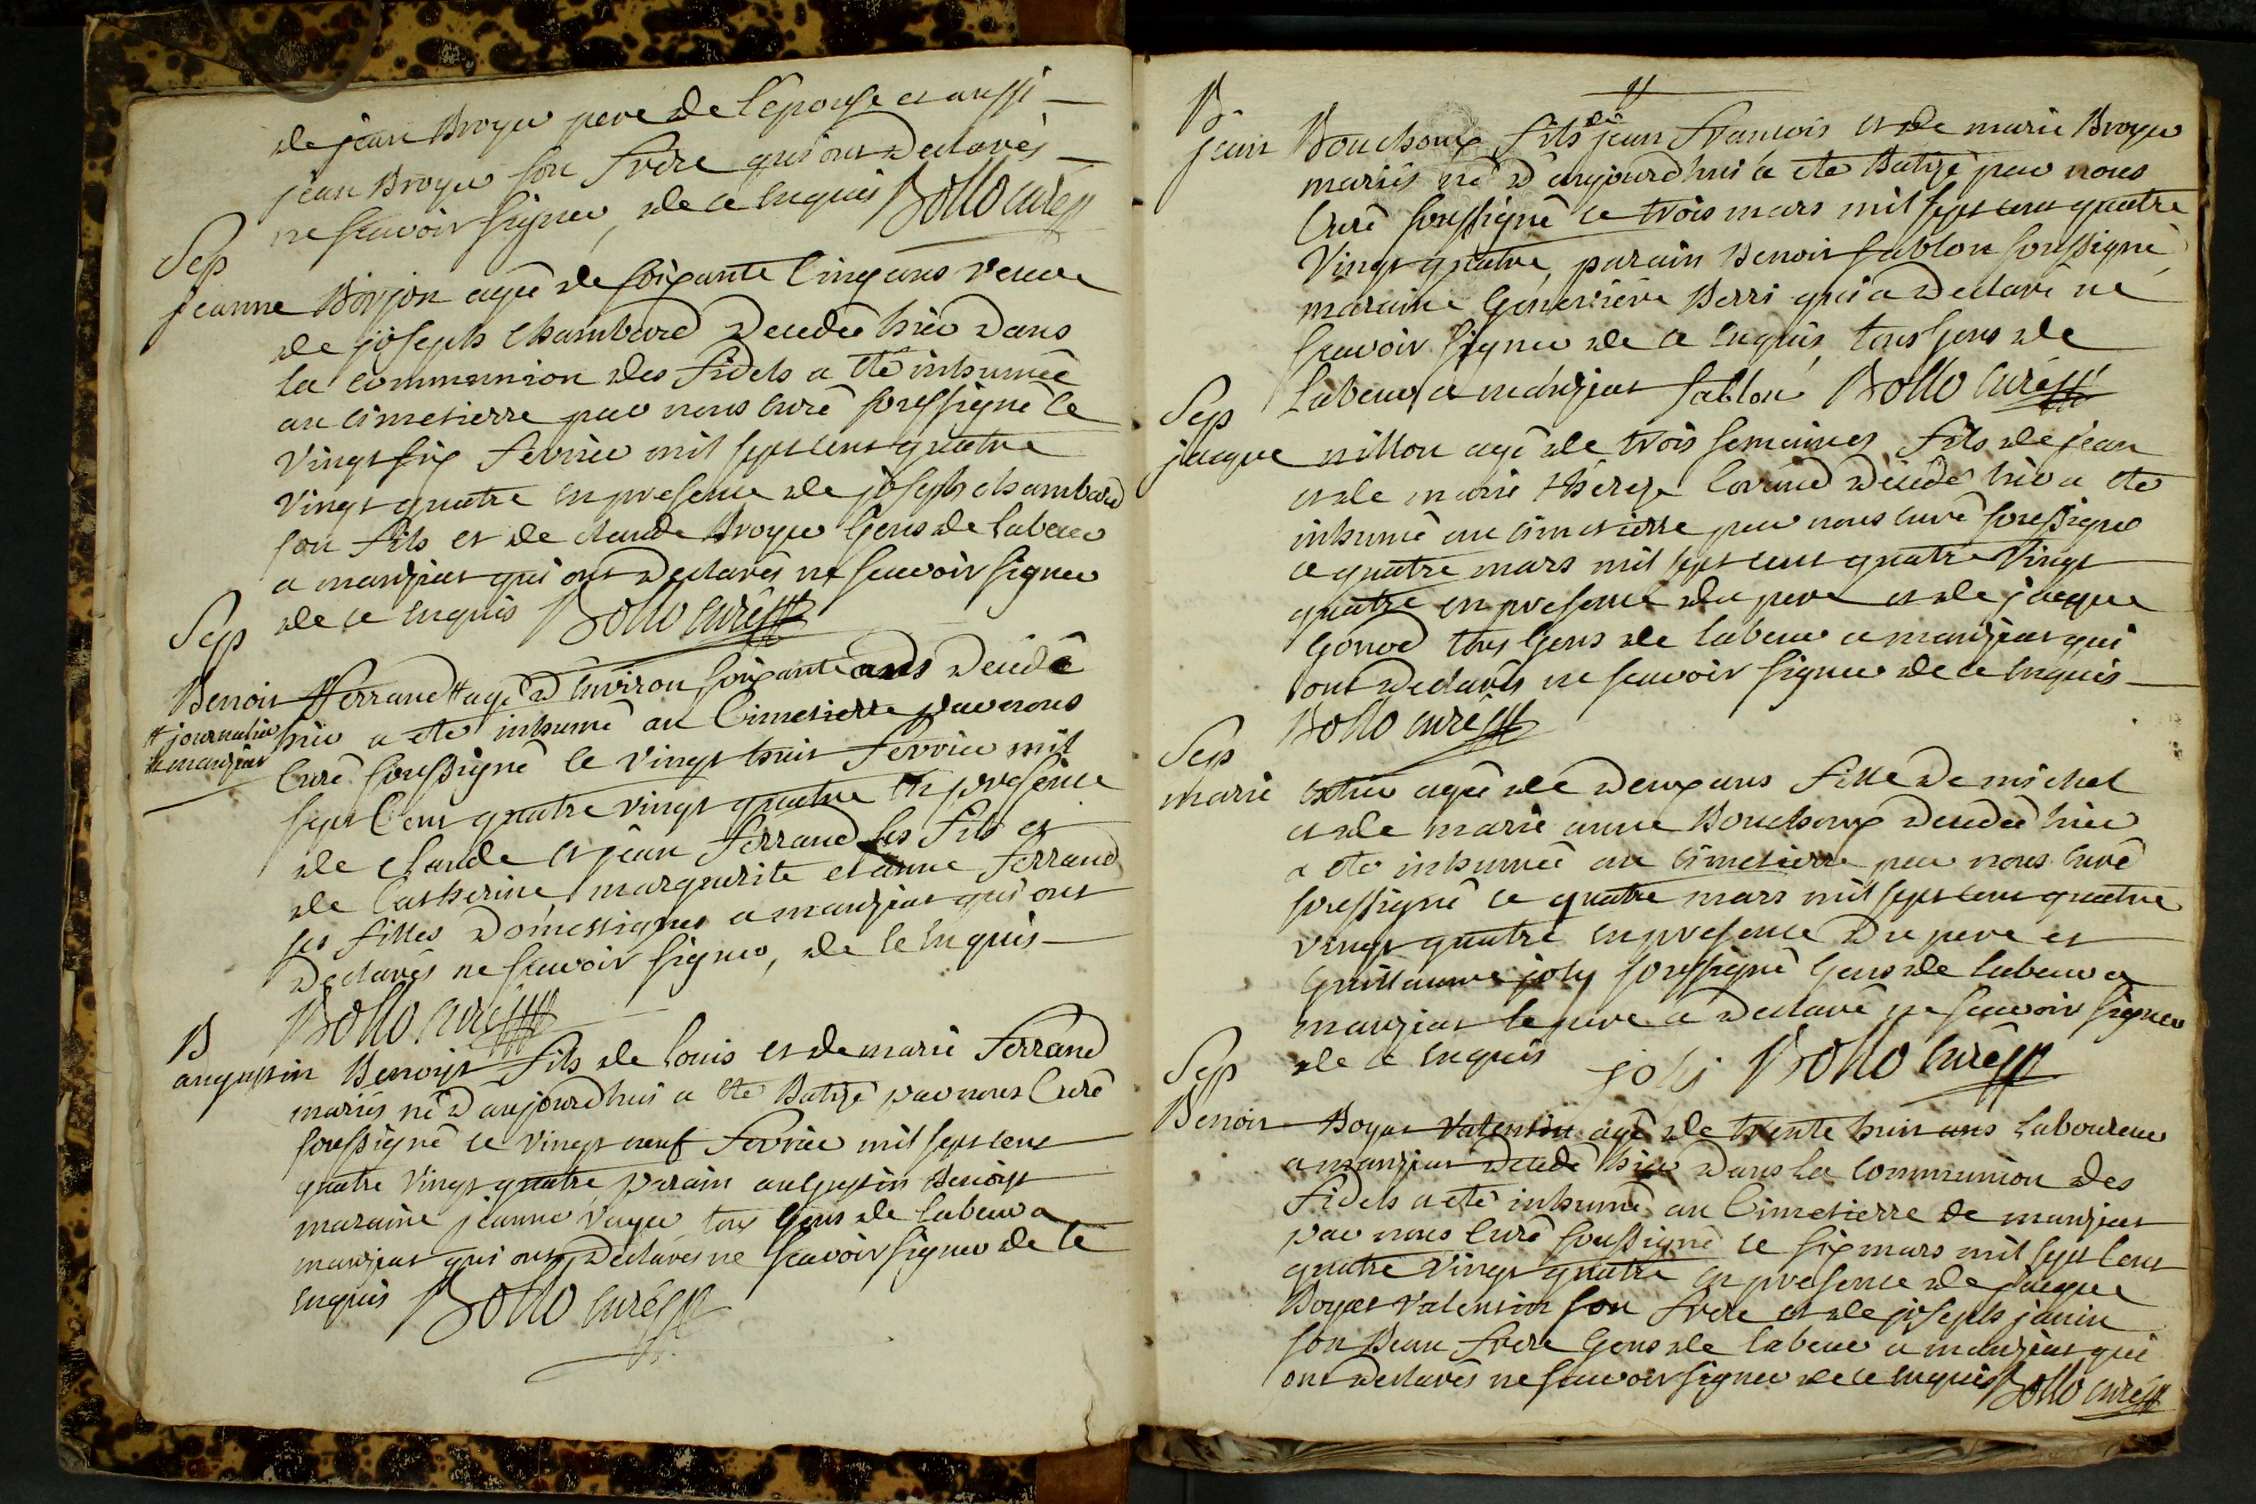 de jean Broyer pere de l'epouse et aussi
jean Broyer son frere qui ont declarés
ne scavoir signer, de ce enquis Bollo curé
Sep
jeanne Borjon agée de soixante cinq ans veuve
de joseph Chambard decedée hier dans
la communion des fidels a été inhumée
au cimetierre par nous curé soussigné le
vingt six fevrier mil sept cent quatre
vingt quatre en presence de joseph chambard
son fils et de claude Broyer gens de labeur
a manziat qui ont declarés ne scavoir signer
de ce enquis Bollo curé
Sep
Benoit Ferrand # agé d'environ soixante ans decedé
# journalier a manziat
hier a eté inhumé au Cimetierre par nous
Curé soussigné le vingt huit fevrier mil
sept Cent quatre vingt quatre en presence
de claude et jean Ferrand ses fils et
de Catherine, marguerite et anne Ferrand
ses filles domestiques a manziat qui ont
declarés ne scavoir signer, de ce enquis
Bollo curé
B
augustin Benoist fils de louis et de marie Ferrand
mariés né d'aujourdhui a eté Batizé par nous Curé
soussigné ce vingt neuf fevrier mil sept cent
quatre vingt quatre, parain augustin Benoist
maraine jeanne Vayer tous gens de labeur a
manziat qui ont declarés ne scavoir signer de ce
enquis Bollo curé
11
B
jean Bouchoux fils de jean francois et de marie Broyer
mariés né d'aujourdhui a eté Batizé par nous
Curé soussigné ce trois mars mil sept cent quatre
vingt quatre, parain Benoit sablon soussigné
maraine Genevieve Berri qui a declaré ne
scavoir signer de ce enquis, tous gens de
labeur a manziat sablon Bollo curé
Sep
jacque nillon agé de trois semaines fils de jean
et de marie thereze decédé hier a eté
inhumé au cimetierre par nous curé soussigné
ce quatre mars mil sept cent quatre vingt
quatre en presence du pere et de jacque
Gonod tous gens de labeur a manziat qui
ont declarés ne scavoir signer de ce enquis
Bollo curé
Sep
marie agée de deux ans fille de michel
et de marie anne Bouchoux decedée hier
a eté inhumée au cimetierre par nous curé
soussigné ce quatre mars mil sept cent quatre
vingt quatre en presence du pere et
guillaume joly soussigné gens de labeur a
manziat le pere a declaré ne scavoir signer
de ce enquis joly Bollo curé
Sep
Benoit Boyat Valentin agé de trente huit ans laboureur
a manziat decedé hier dans la communion des
fidels a eté inhumé au Cimetierre de manziat
par nous Curé soussigné ce six mars mil sept cent
quatre vingt quatre en presence de jacque
Boyat valentin son frere et de joseph janin
son Beau frere gens de labeur a manziat qui
ont declarés ne scavoir signer de ce enquis Bollo curé